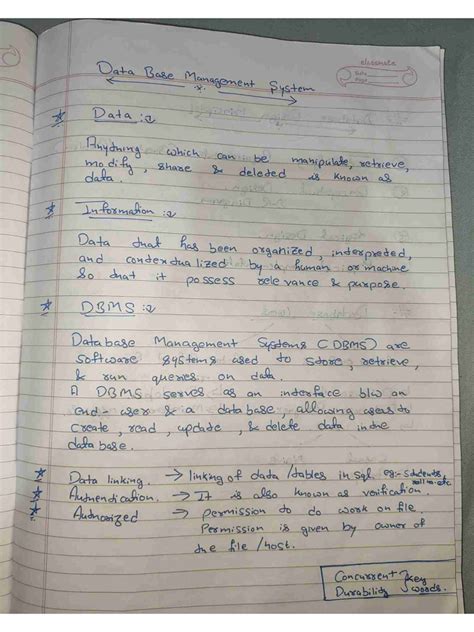 classmate
Date
Page
Data Base Management System
Data :-
Anything which can be manipulate, retrieve,
modify, share & deleted is known as
data.
Information :-
Data that has been organized, interpreted,
and contextualized by a human or machine
so that it possess relevance & purpose.
DBMS :-
Database Management Systems (DBMS) are
software systems used to store, retrieve,
& run queries on data.
A DBMS serves as an interface b/w an
end-user & a database, allowing users to
create, read, update, & delete data in the
database.
Data linking. → linking of data /tables in sql. eg:- students,
roll no. etc.
Authentication. → It is also known as verification.
Authorized → permission to do work on file.
Permission is given by owner of
the file /host.
Concurrent } key
Durability } words.